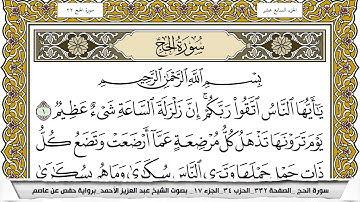 الجزء السابع عشر
سورة الحج ٢٢
سُورَةُ الحَجِّ
بِسْمِ اللَّهِ الرَّحْمَٰنِ الرَّحِيمِ
يَا أَيُّهَا النَّاسُ اتَّقُوا رَبَّكُمْ إِنَّ زَلْزَلَةَ السَّاعَةِ شَيْءٌ عَظِيمٌ ١
يَوْمَ تَرَوْنَهَا تَذْهَلُ كُلُّ مُرْضِعَةٍ عَمَّا أَرْضَعَتْ وَتَضَعُ كُلُّ
ذَاتِ حَمْلٍ حَمْلَهَا وَتَرَى النَّاسَ سُكَارَىٰ وَمَا هُم بِسُكَارَىٰ
سورة الحج _ الصفحة ٣٣٢_ الحزب ٣٤_ الجزء ١٧_ بصوت الشيخ عبد العزيز الأحمد_ برواية حفص عن عاصم